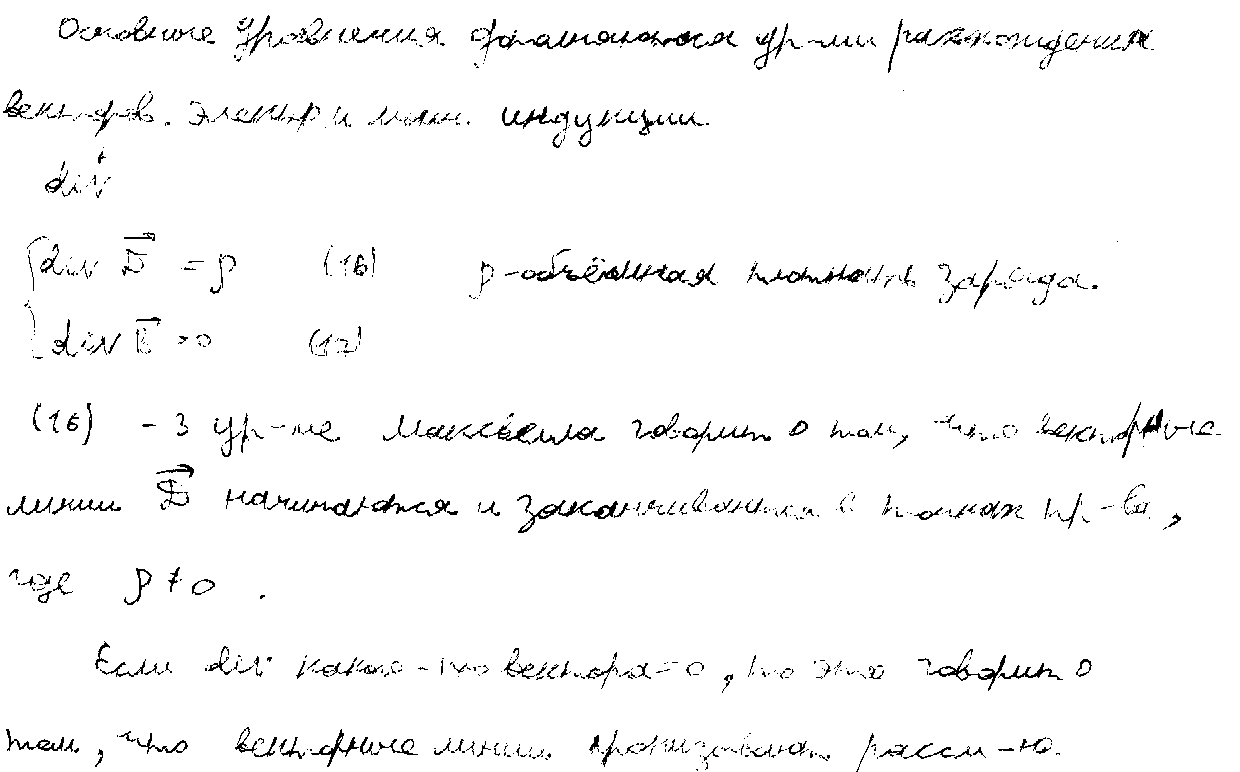 Основные уравнения дополняются ур-ми расхождения
векторов. электр и магн. индукции.
div
div D⃗ = ρ (16) ρ-объёмная плотность заряда.
div B⃗ = 0 (17)
(16) - 3 ур-ие Максвелла говорит о том, что векторные
линии D⃗ начинаются и заканчиваются в точках пр-ва,
где ρ ≠ 0 .
Если div какого-то вектора = 0, то это говорит о
том, что векторные линии пронизывают рассм-ю.